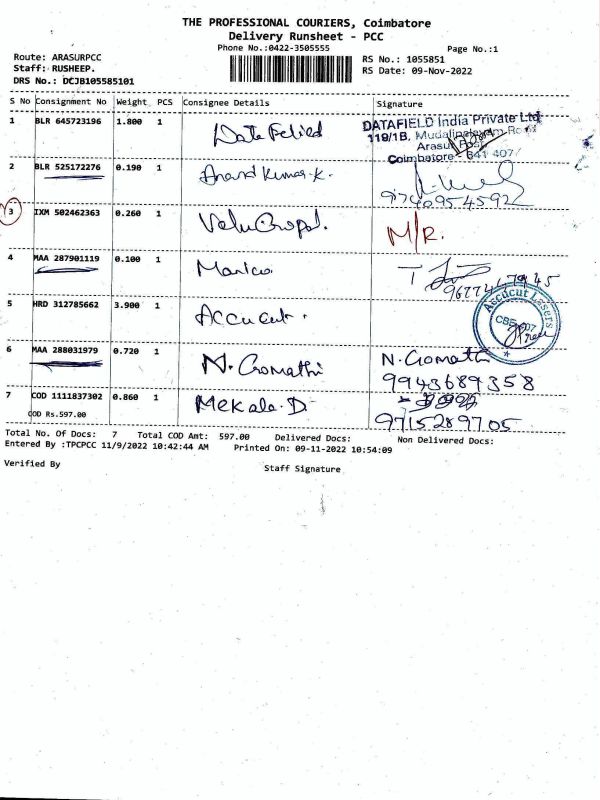 THE PROFESSIONAL COURIERS, Coimbatore
Delivery Runsheet - PCC
Phone No.:0422-3505555
Page No.:1
Route: ARASURPCC
Staff: RUSHEEP.
DRS No.: DCJB105585101
RS No.: 1055851
RS Date: 09-Nov-2022
S No Consignment No Weight PCS Consignee Details Signature
1 BLR 645723196 1.800 1
DATAFIELD India Private Ltd
119/1B, Mudalipalayam Road
Arasur Post
Coimbatore - 641 407
2 BLR 525172276 0.190 1 Anand Kumar.K.
9740954592
3 IXM 502462363 0.260 1 VeluGopal. M/R.
4 MAA 287901119 0.100 1 Manica
5 HRD 312785662 3.900 1 Accucut.
Accucut Lasers
6 MAA 288031979 0.720 1 N.Gomathi N.Gomathi
9943689358
7 COD 1111837302 0.860 1 Mekala.D
COD Rs.597.00
9715289705
Total No. Of Docs: 7 Total COD Amt: 597.00 Delivered Docs: Non Delivered Docs:
Entered By :TPCPCC 11/9/2022 10:42:44 AM Printed On: 09-11-2022 10:54:09
Verified By Staff Signature